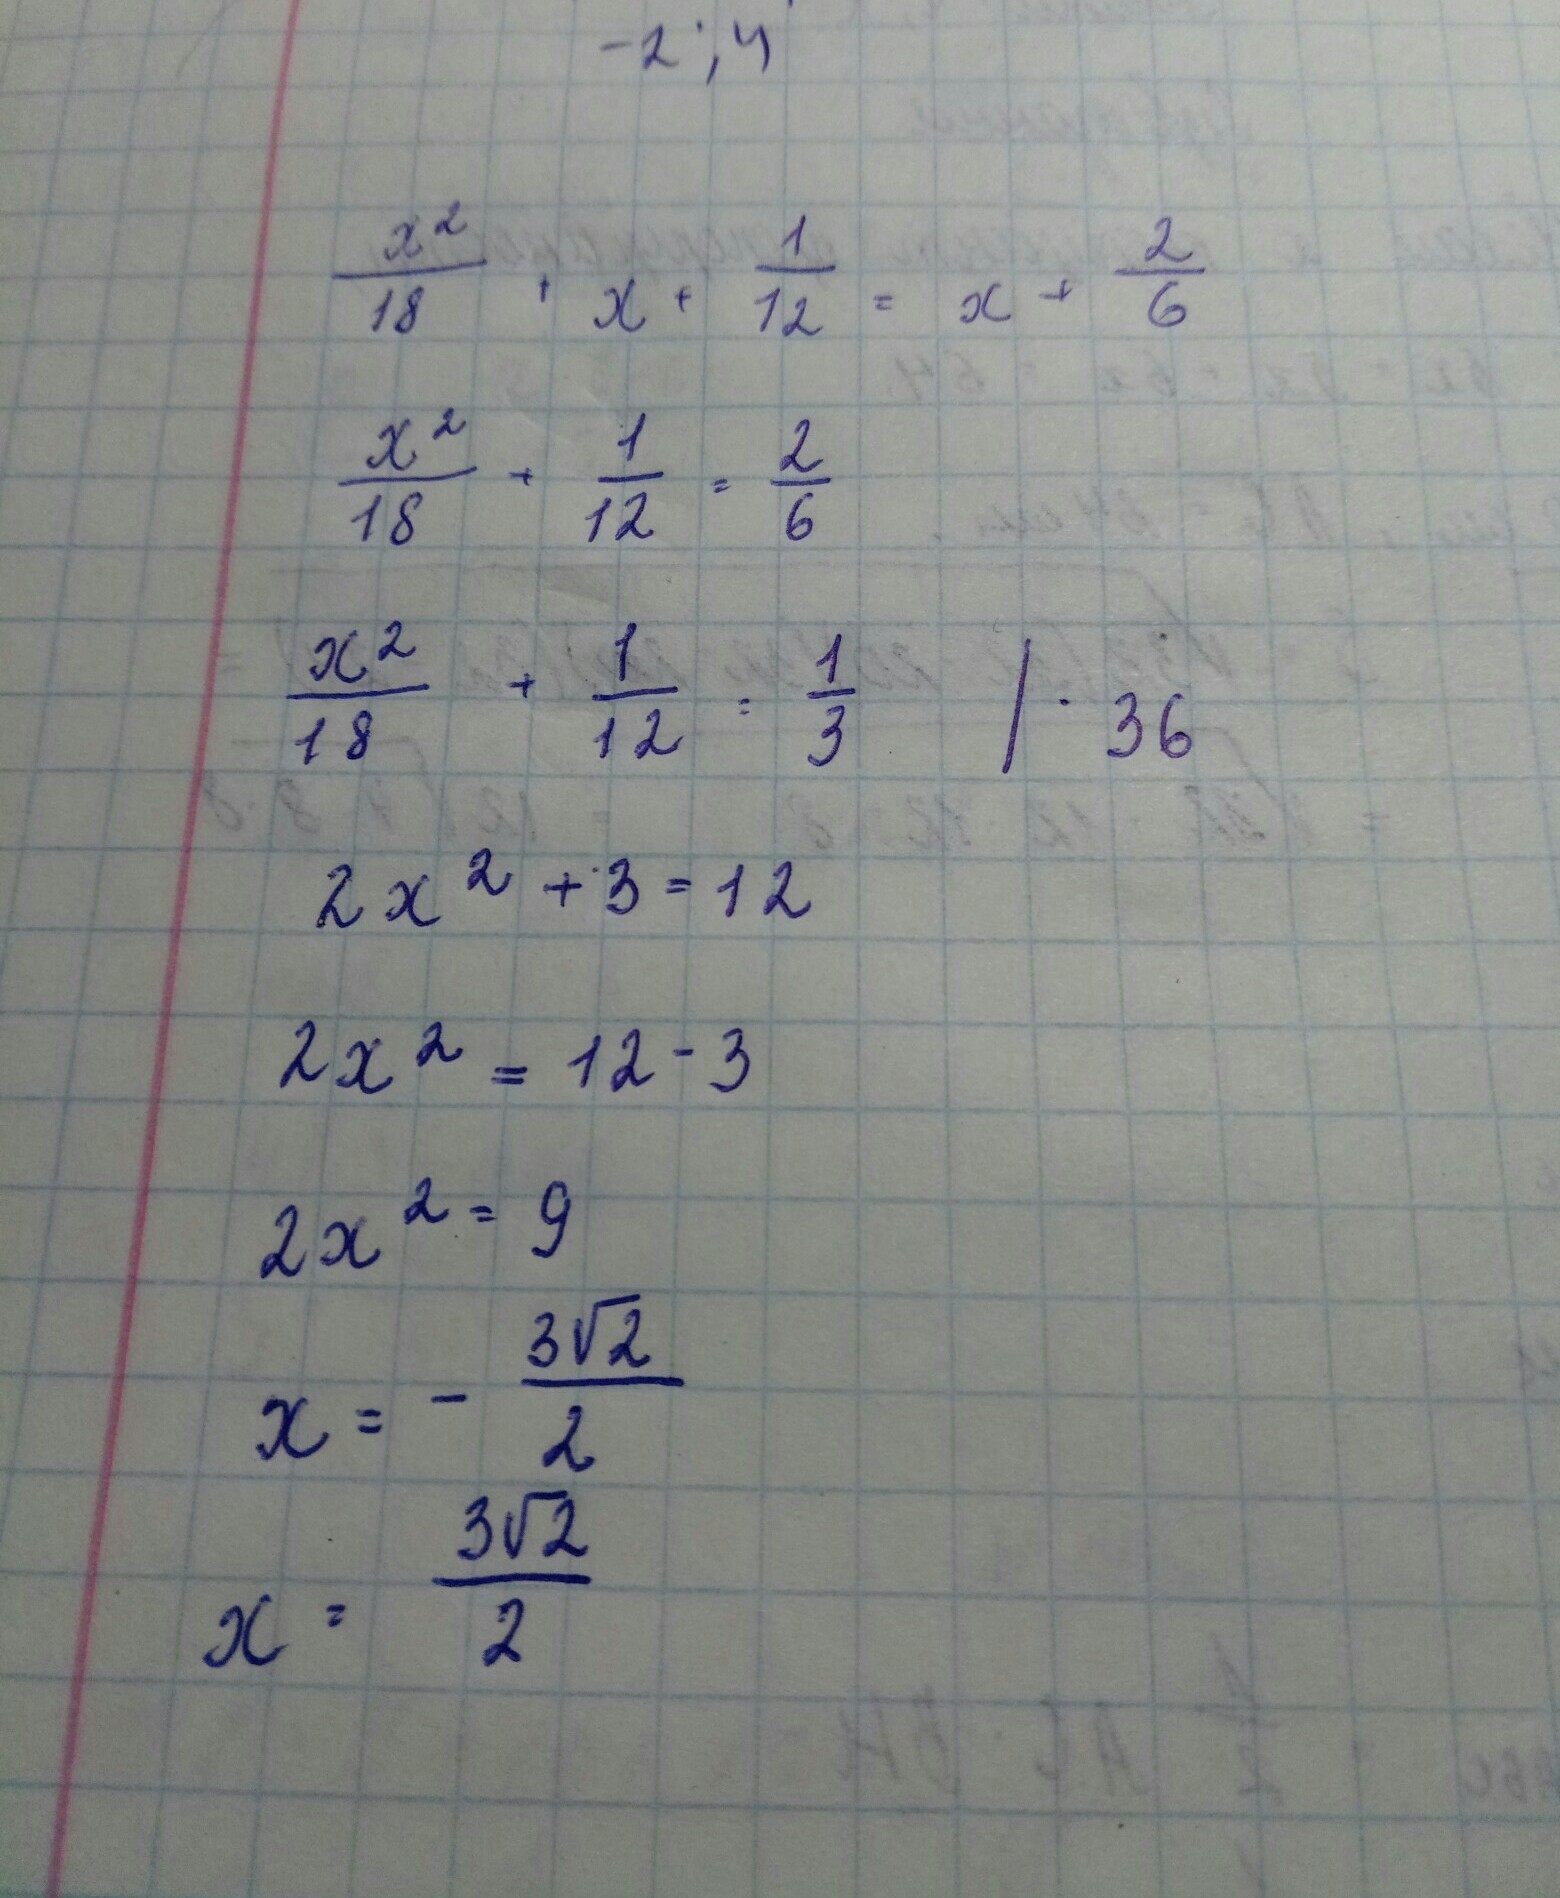 -2; 4
x²/18 + x + 1/12 = x + 2/6
x²/18 + 1/12 = 2/6
x²/18 + 1/12 = 1/3 | · 36
2x² + 3 = 12
2x² = 12 - 3
2x² = 9
x = - 3√2/2
x = 3√2/2